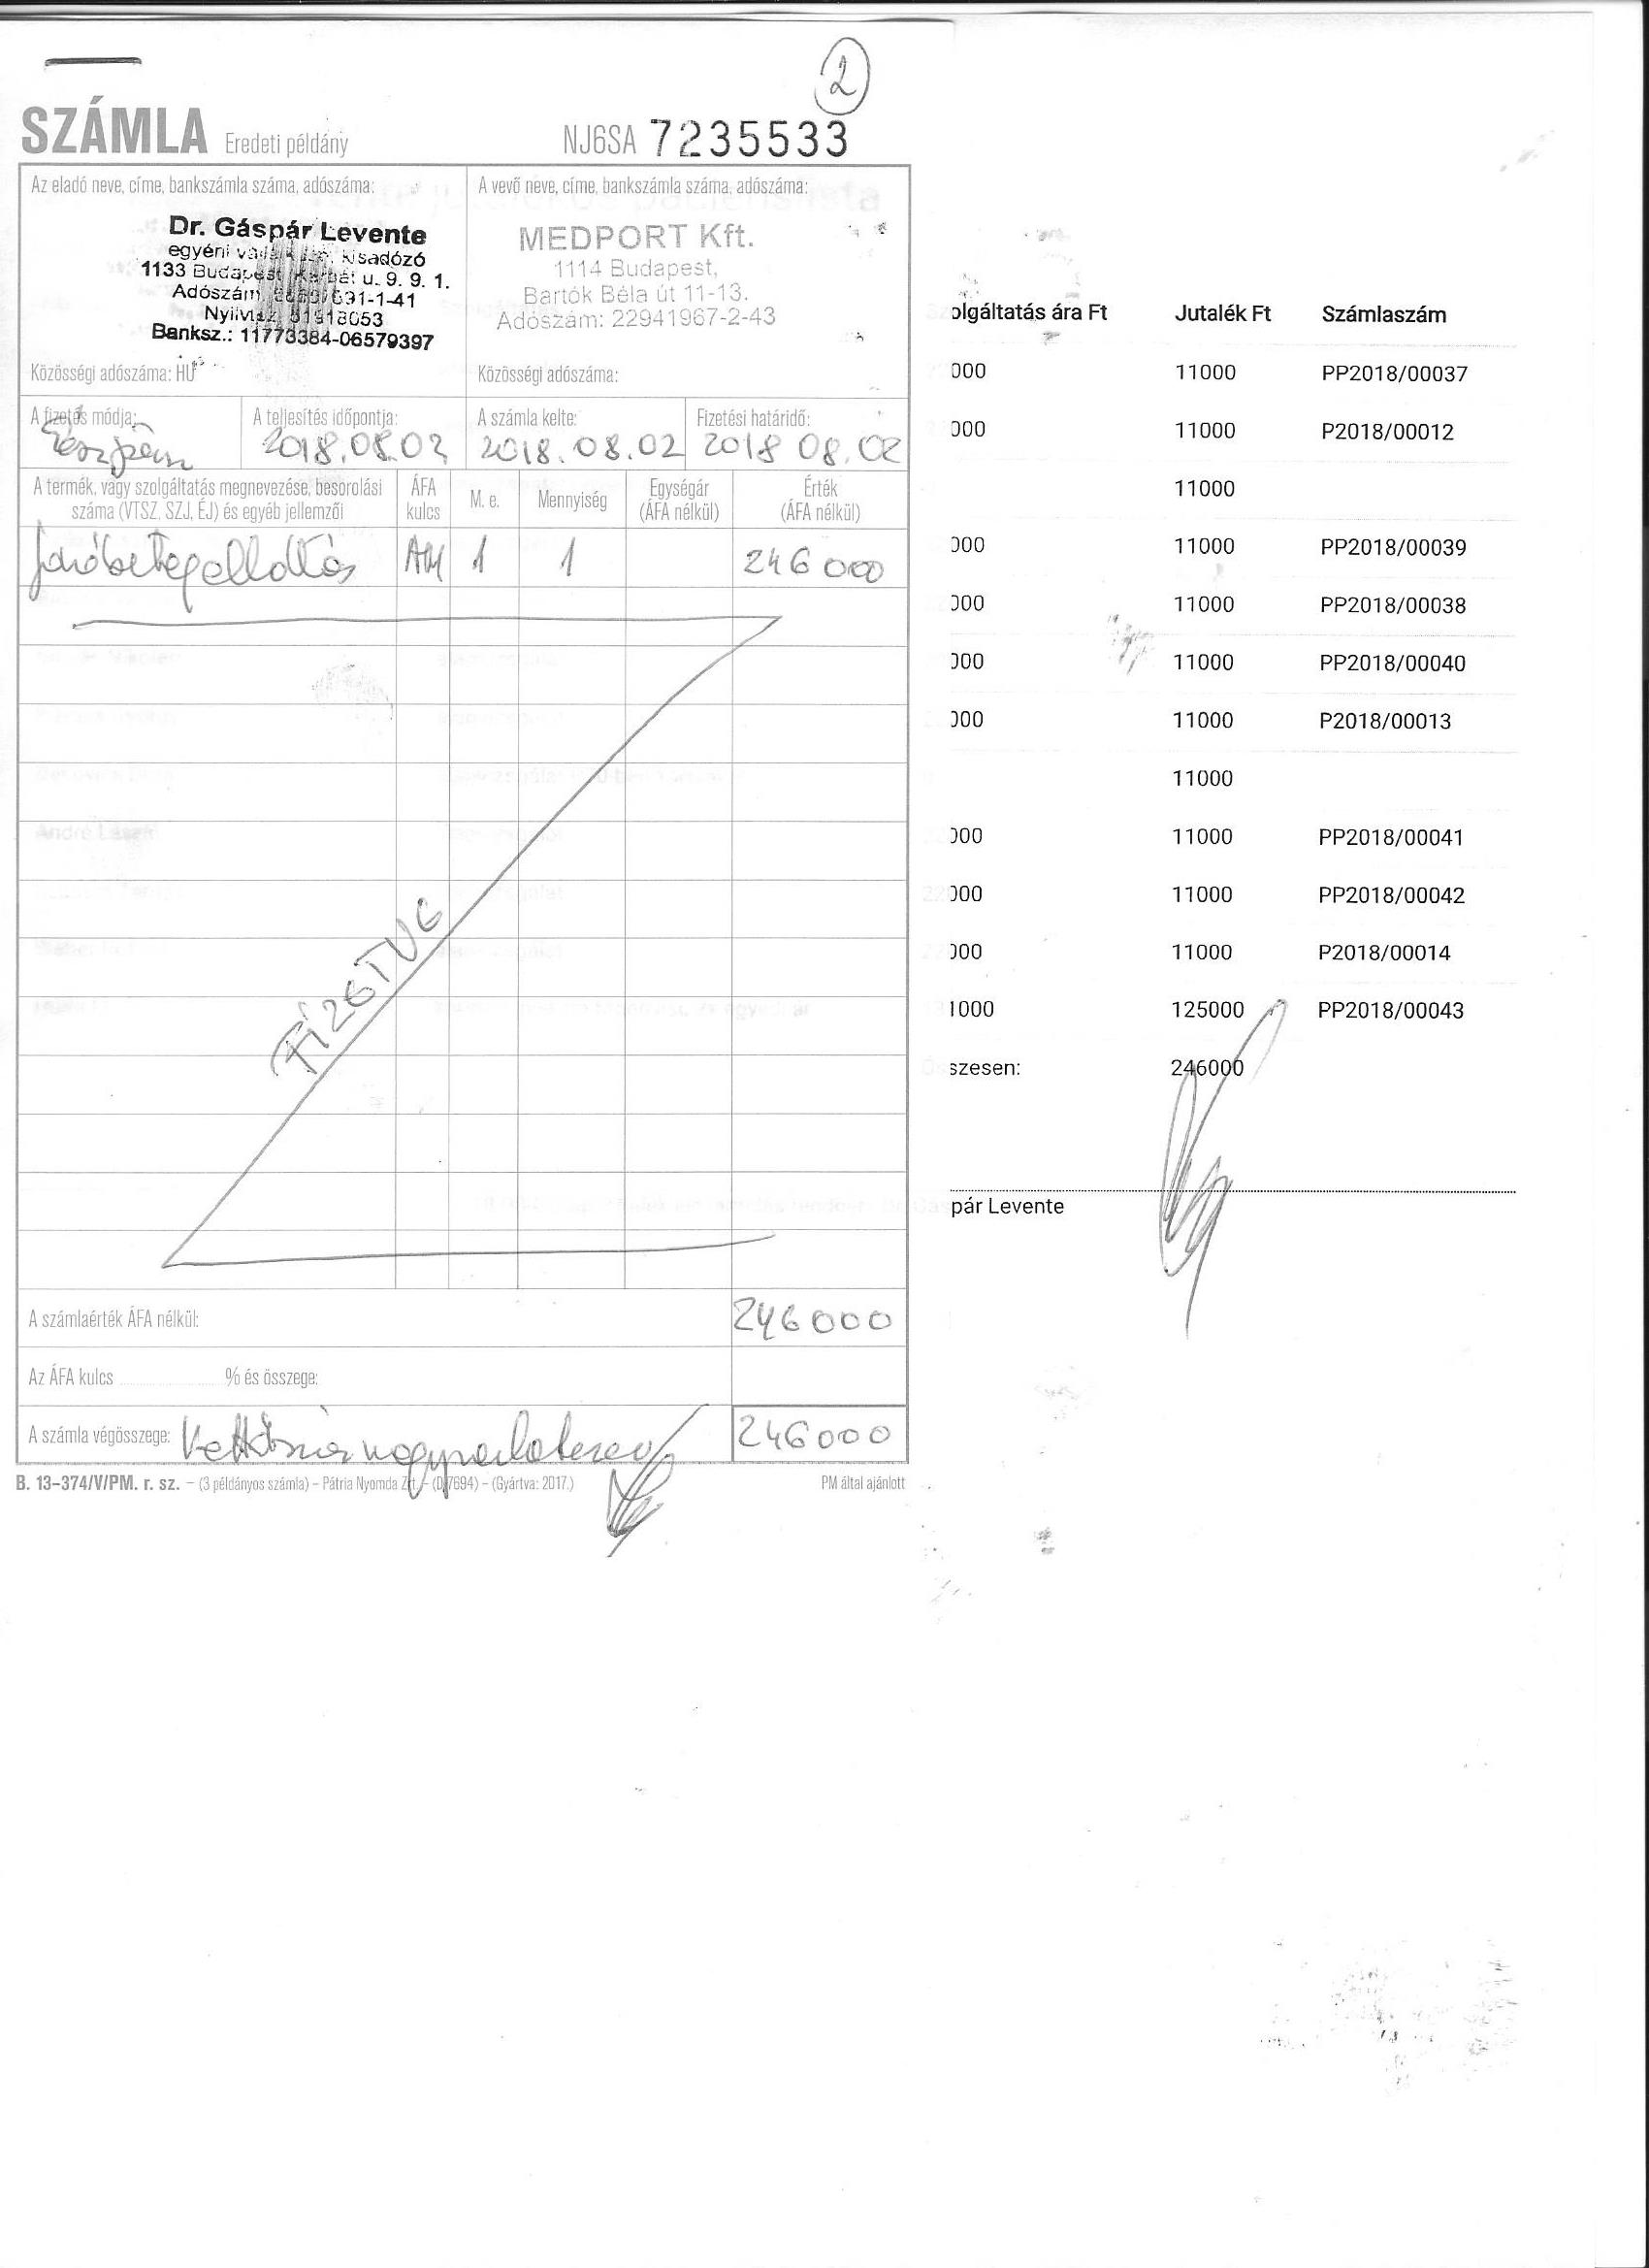 2
SZÁMLA Eredeti példány NJ6SA 7235533
Az eladó neve, címe, bankszámla száma, adószáma:
Dr. Gáspár Levente
egyéni kisadózó
1133 Budapest u. 9. 9. 1.
Adószám 631-1-41
Banksz.: 11773384-06579397
Közösségi adószáma: HU
A vevő neve, címe, bankszámla száma, adószáma:
MEDPORT Kft.
1114 Budapest,
Bartók Béla út 11-13.
Adószám: 22941967-2-43
Közösségi adószáma:
A fizetés módja: A teljesítés időpontja: A számla kelte: Fizetési határidő:
Készpénz 2018.08.02 2018.08.02 2018 08.02
A termék, vagy szolgáltatás megnevezése, besorolási száma (VTSZ, SZJ, ÉJ) és egyéb jellemzői
ÁFA kulcs
M. e.
Mennyiség
Egységár (ÁFA nélkül)
Érték (ÁFA nélkül)
Járóbetegellátás AM 1 1 246 000
FIZETVE
A számlaérték ÁFA nélkül: 246 000
Az ÁFA kulcs % és összege:
A számla végösszege: 246000
B. 13-374/V/PM. r. sz. – (3 példányos számla) – Pátria Nyomda Zrt. – (D.7694) – (Gyártva: 2017.) PM által ajánlott
olgáltatás ára Ft Jutalék Ft Számlaszám
000 11000 PP2018/00037
000 11000 P2018/00012
11000
000 11000 PP2018/00039
000 11000 PP2018/00038
000 11000 PP2018/00040
000 11000 P2018/00013
11000
000 11000 PP2018/00041
000 11000 PP2018/00042
000 11000 P2018/00014
1000 125000 PP2018/00043
szesen: 246000
pár Levente